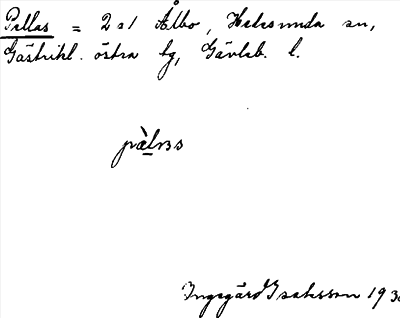 Pellas = 2 s1 Ålbo, Hedesunda sn,
Gästrikl. östra tg, Gävleb. l.
pèlɐs
Ingegärd Isaksson 193